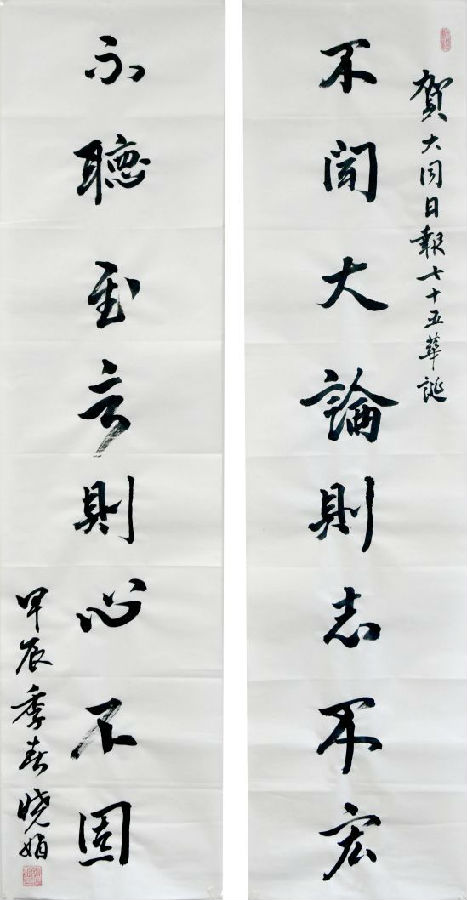 賀大同日報七十五華誕
不聞大論則志不宏
不聽至言則心不固
甲辰季春曉娟